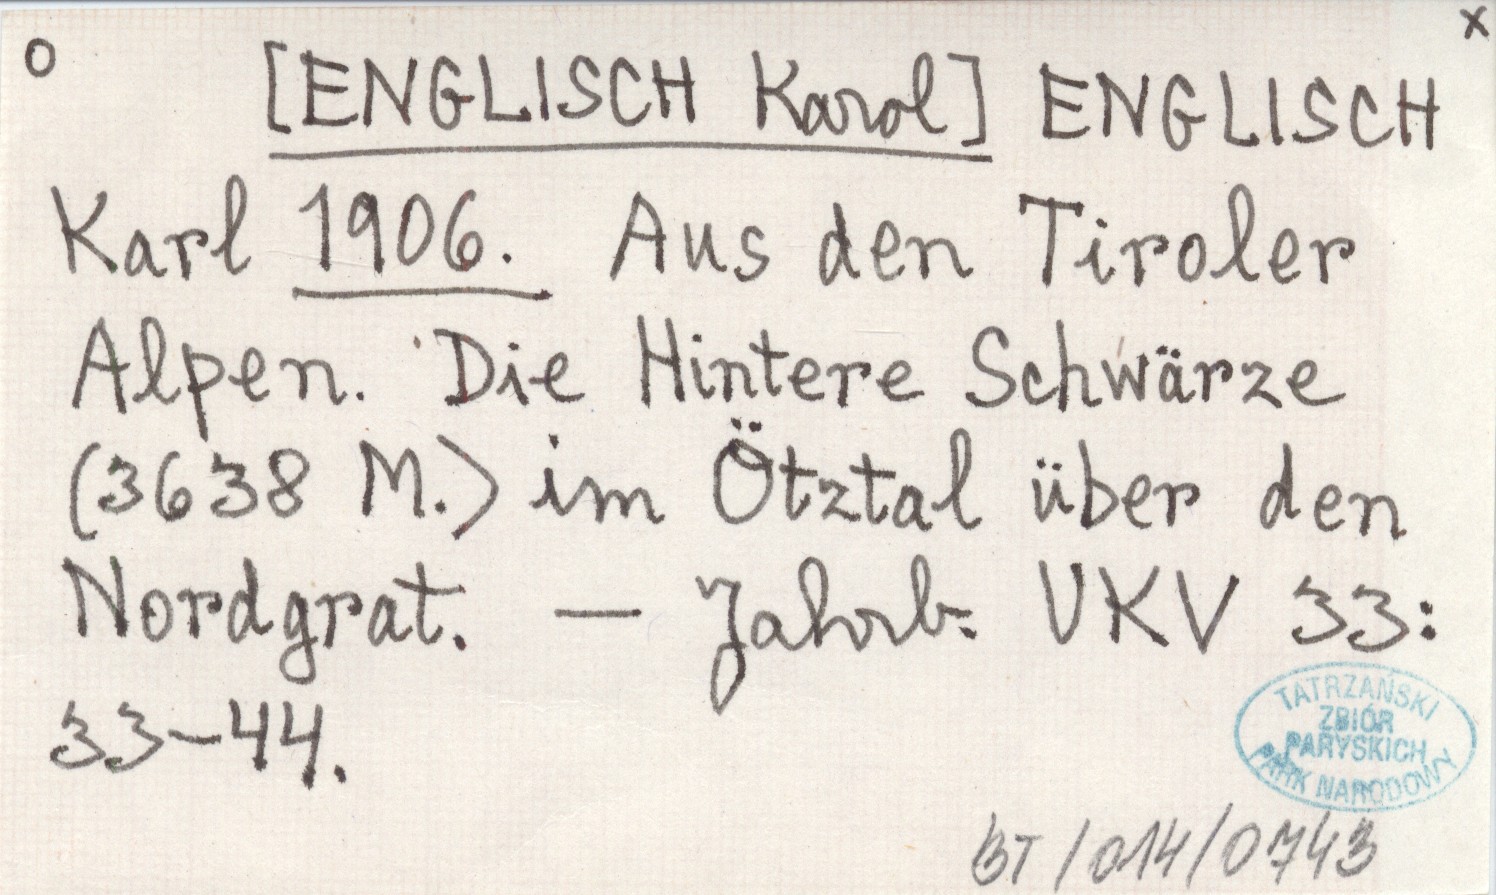 o x
[ENGLISCH Karol] ENGLISCH
Karl 1906. Aus den Tiroler
Alpen. Die Hintere Schwärze
(3638 M.) im Ötztal über den
Nordgrat. — Jahrb. VKV 33:
33-44.
TATRZAŃSKI
ZBIÓR
PARYSKICH
PARK NARODOWY
BT/014/0743